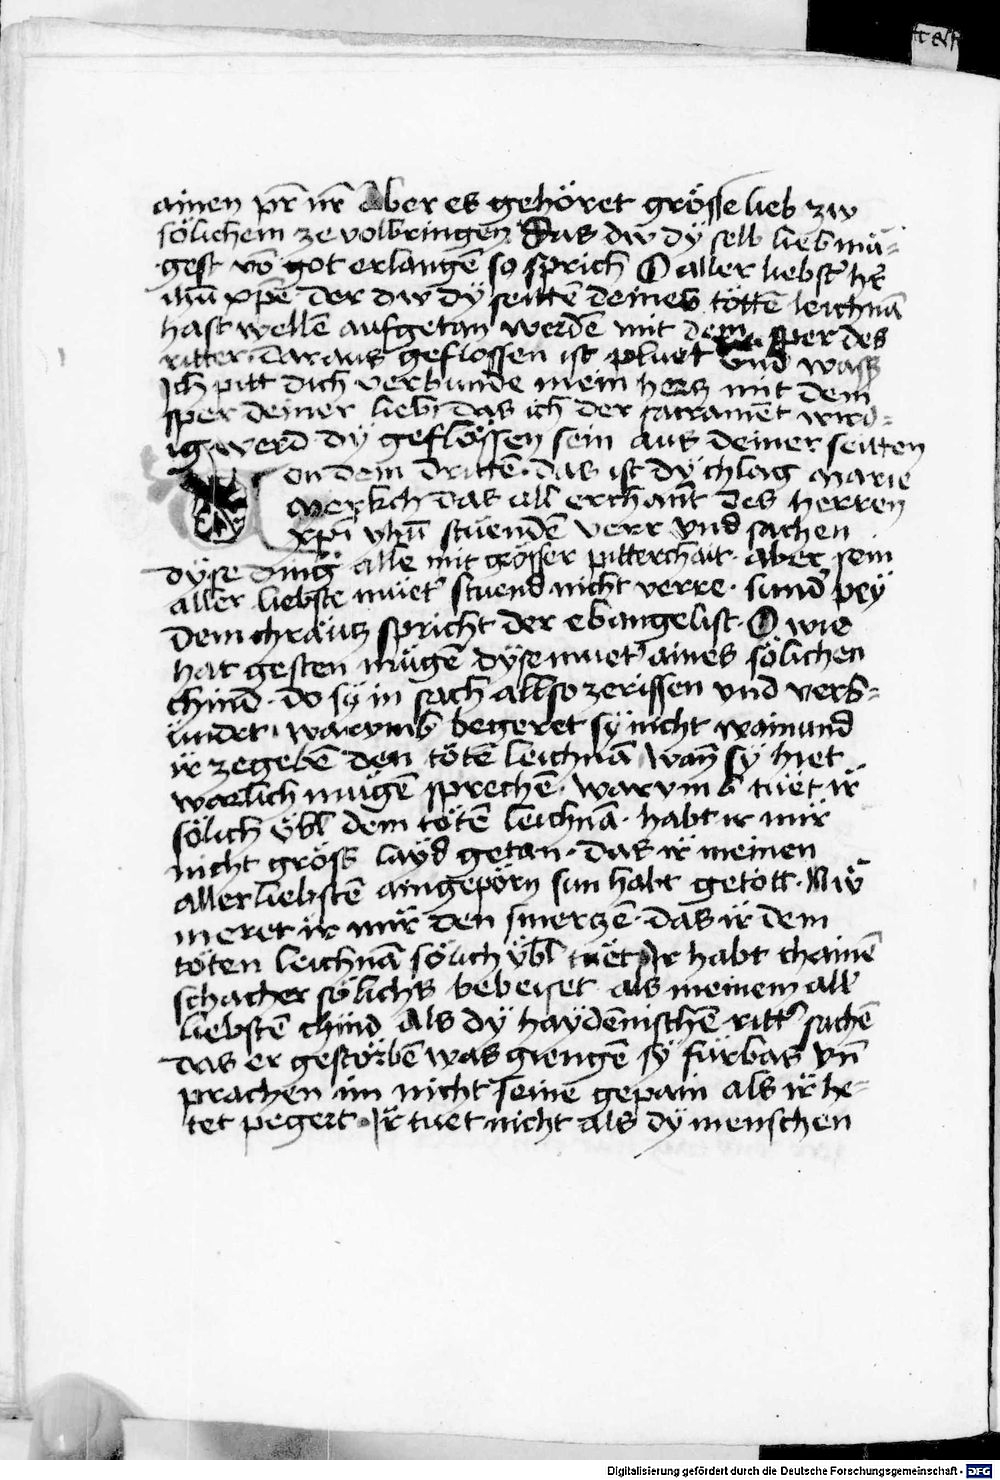 ainen pr̄ nr̄ Aber es gehöret grösse lieb zw
sölichem ze volbringen Das dw dÿ selb lieb mä-
gest vō got erlangē so sprich O aller liebst' h̄r
ihū xpē der dw dÿ seittē deines töttē leichnā
hast wellē aufgetan werdē mit dem sper des
ritter daraus geflossen ist pluet vnd wasß
Ich pitt dich verbunde mein hercz mit dem
sper deiner lieb das ich der sacramēt wird-
ig werd dÿ geflössen sein aus deiner seitten
on dem drittē das ist dÿ chlag marie
Merkch das all erchant des herren
xp̄i yhū stuendē verr vnd sachen
dÿse ding alle mit grösser pitterchait · aber sein
aller liebste muet' stuend nicht verre · sund' peÿ
dem chräwtz spricht der ebangelist · O wie
hat gesten mügē dÿse muet' aines sölichen
chind · do sÿ in sach allso zerissen vnd verb-
undet · warvmb begeret sÿ nicht wainund
ir ze gebē den tötē leichnā wan sÿ hiet
warlich mügē sprechē · warvmb tuet ir
sölich übl dem tötē leichnā · habt ir mir
nicht gröss laÿd getan · das ir meinen
aller liebstē aingepörn sun habt getött ·
meret ir mir den smerczē · das ir dem
töten leichnā sölich übl tuet Ir habt chainē
schacher sölichs bebeiset als meinem all'
liebstē chind Als dÿ haÿdēnischē ritt' sachē
das er gestorbē was giengē sÿ fürbas vn̄
prachen im nicht seine gepain als ir he-
tet pegert · Ir tuet nicht als dÿ menschen
Digitalisierung gefördert durch die Deutsche Forschungsgemeinschaft - DFG